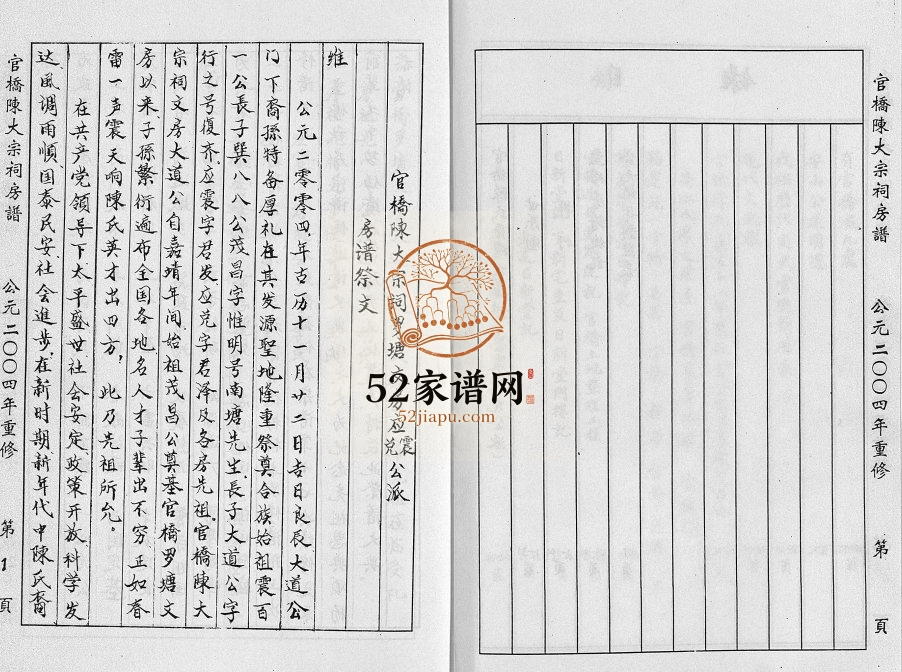 官橋陳大宗祠房譜 公元二〇〇四年重修 第 頁
官橋陳大宗祠罗塘文房应震兑公派
房谱祭文
維
公元二零零四年古历十一月廿二日吉日良辰大道公
门下裔孫特备厚礼在其发源聖地隆重祭奠合族始祖震百
一公長子巽八八公茂昌字惟明号南塘先生長子大道公字
行之号復齐应震字君发应兑字君泽及各房先祖官橋陳大
宗祠文房大道公自嘉靖年间始祖茂昌公奠基官橋罗塘文
房以来、子孫繁衍遍布全国各地名人才子輩出不穷正如春
雷一声震天响陳氏英才出四方,此乃先祖所允。
在共产党领导下太平盛世社会安定政策开放科学发
达風調雨順国泰民安社会進步,在新时期新年代中陳氏裔
官橋陳大宗祠房譜 公元二〇〇四年重修 第1頁
52家谱网
52jiapu.com